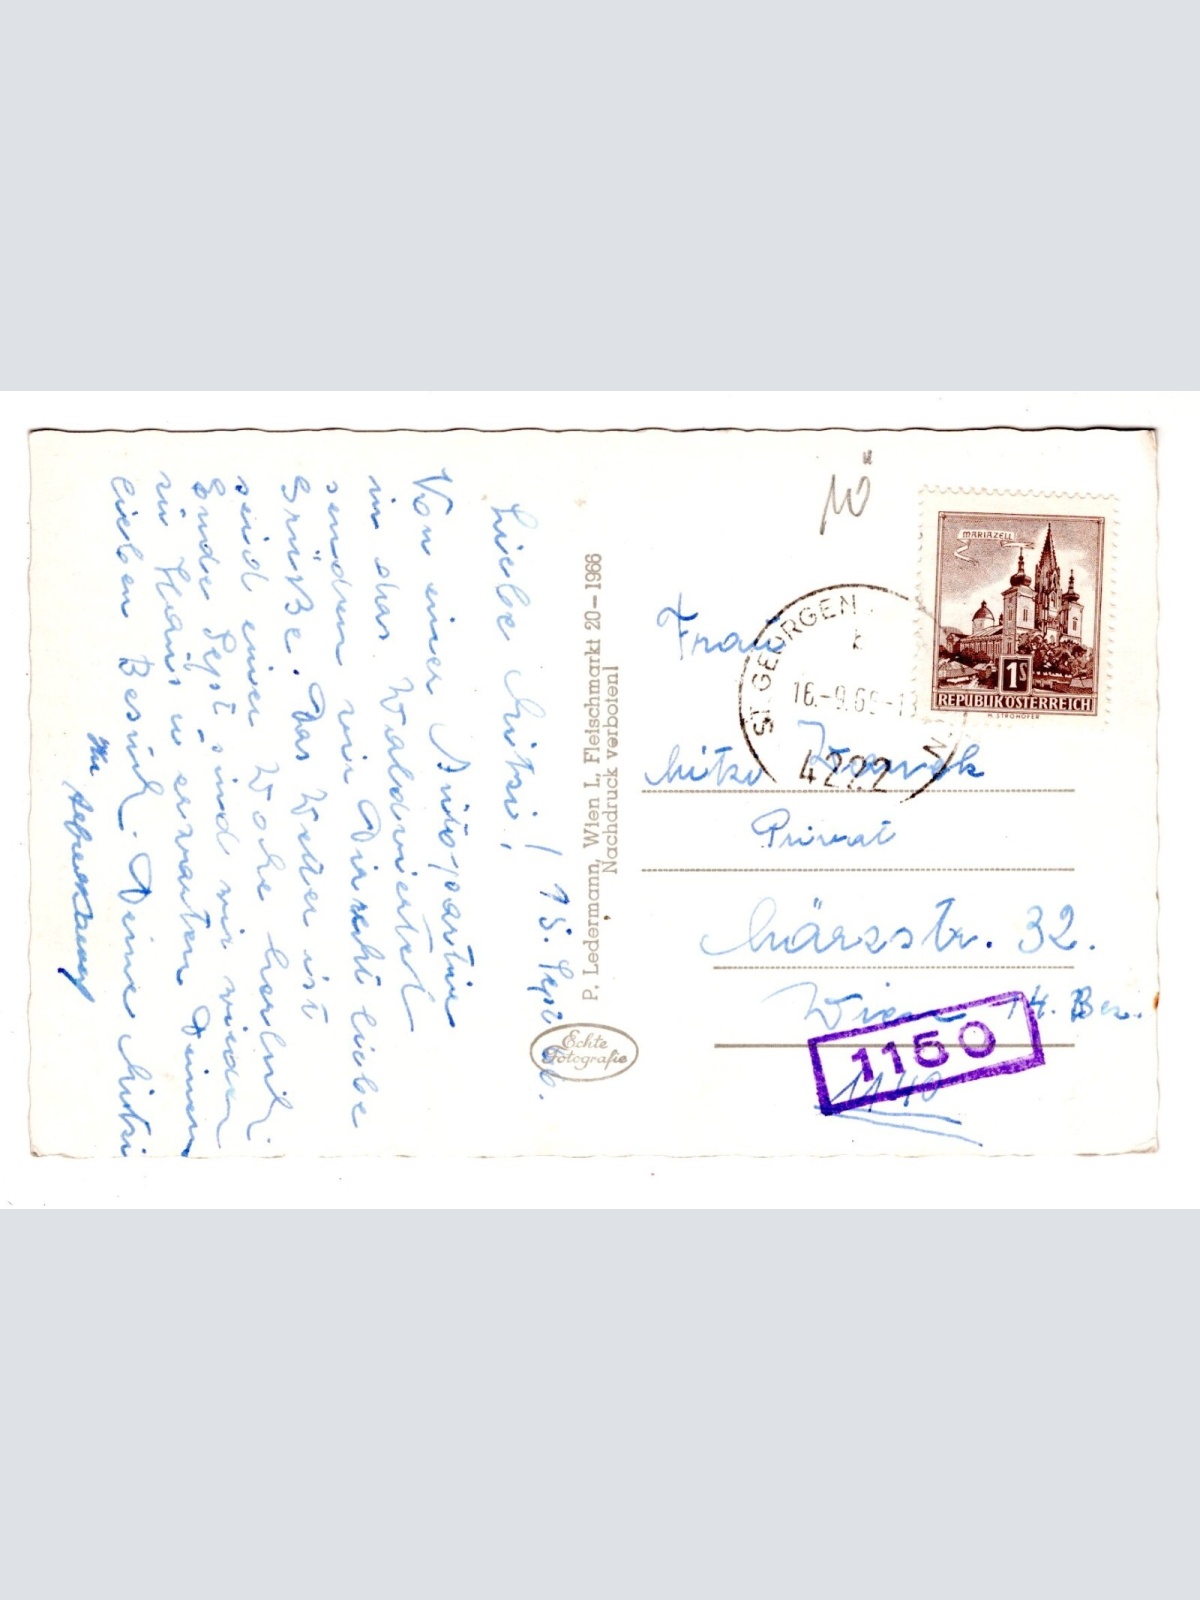 Liebe Mitzi! / 15. Sept. 66.
Von einer Autopartie
in das Waldviertel
senden wir Dir recht liebe
Grüße. Das Wetter ist
seid einer Woche herlich.
Ende Sept sind wir wieder
zu Haus u erwarten Deinen
lieben Besuch. Deine Mitzi
P. Ledermann, Wien I., Fleischmarkt 20 – 1966
Nachdruck verboten!
Echte
Fotografie
10
MARIAZELL
1S
REPUBLIK ÖSTERREICH
H. STROHOFER
ST. GEORGEN
16.-9.66-13
4222
Frau
Mitzi
Privat
Märzstr. 32.
Wien 14. Bez.
1150
1140